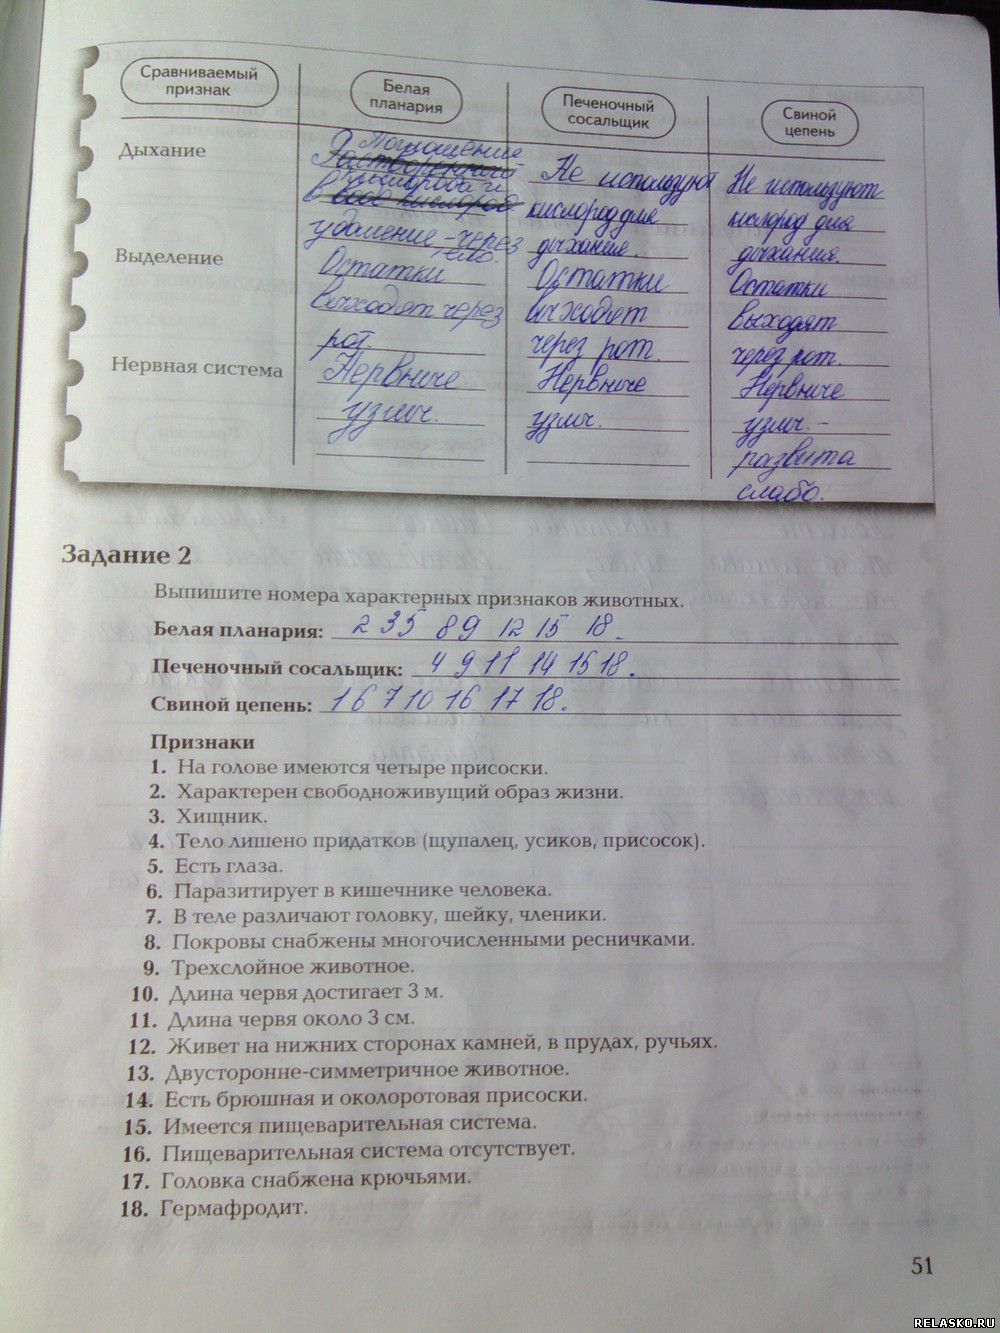 Сравниваемый
признак
Белая
планария
Печеночный
сосальщик
Свиной
цепень
Дыхание
Поглощение
кислорода и
удаление - через
тело.
Не используют
кислород для
дыхания.
Не используют
кислород для
дыхания.
Выделение
Остатки
выходят через
рот.
Остатки
выходят
через рот.
Остатки
выходят
через рот.
Нервная система
Нервные
узлы.
Нервные
узлы.
Нервные
узлы. -
развита
слабо.
Задание 2
Выпишите номера характерных признаков животных.
Белая планария: 2 3 5 8 9 12 15 18.
Печеночный сосальщик: 4 9 11 14 15 18.
Свиной цепень: 1 6 7 10 16 17 18.
Признаки
1. На голове имеются четыре присоски.
2. Характерен свободноживущий образ жизни.
3. Хищник.
4. Тело лишено придатков (щупалец, усиков, присосок).
5. Есть глаза.
6. Паразитирует в кишечнике человека.
7. В теле различают головку, шейку, членики.
8. Покровы снабжены многочисленными ресничками.
9. Трехслойное животное.
10. Длина червя достигает 3 м.
11. Длина червя около 3 см.
12. Живет на нижних сторонах камней, в прудах, ручьях.
13. Двусторонне-симметричное животное.
14. Есть брюшная и околоротовая присоски.
15. Имеется пищеварительная система.
16. Пищеварительная система отсутствует.
17. Головка снабжена крючьями.
18. Гермафродит.
51
RELASKO.RU